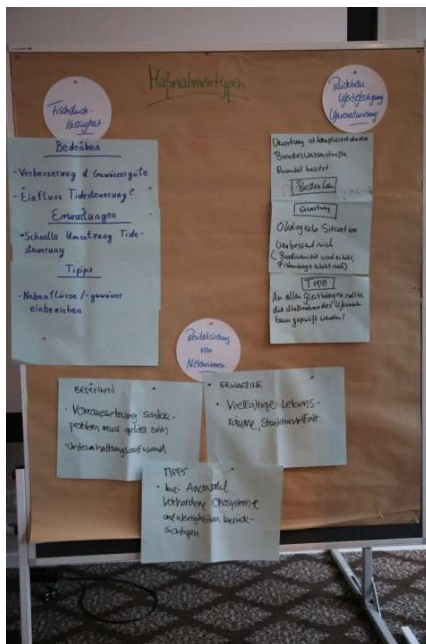 Maßnahmentypen
Fischdurch-
lässigkeit
Bedenken
- Verbesserung d. Gewässergüte
- Einfluss Tidesteuerung?
Erwartungen
- Schnelle Umsetzung Tide-
steuerung
Tipps
- Nebenflüsse/-gewässer
einbeziehen
Rückbau
Uferbefestigung
Umsetzung ist kompliziert durch
Bundeswasserstraße
Bedenken
Erwartung
Ökologische Situation
verbessert sich
(Biodiversität wird erhöht,
Tipp
An allen Gleithängen sollte
die Maßnahme der Uferrück
baus geprüft werden!
Revitalisierung
von
Nebenrinnen
BEDENKEN
• Voraussetzung Schlick-
problem muss gelöst sein
• Unterhaltungsaufwand
ERWARTUNG
• Vielfältige Lebens-
räume, Strukturvielfalt
TIPPS
• bei Auswahl
vorhandene Ökosysteme
und Wertigkeiten berück-
sichtigen